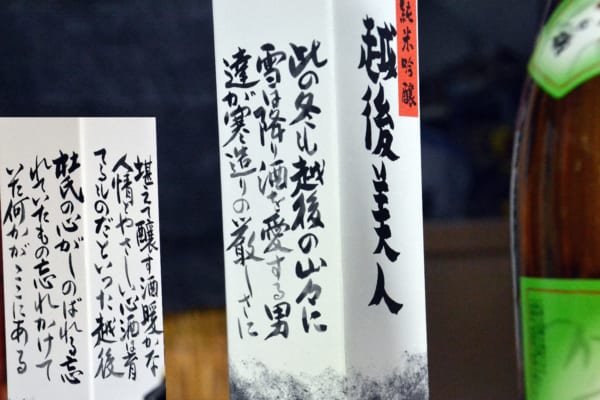 純米吟醸
越後美人
此の冬も越後の山々に
雪は降り酒を愛する男
達が寒造りの厳しさに
堪えて醸す酒暖かな
人情やさしい心酒は昔
てるものだといった越後
杜氏の心がしのばれる忘
れていたもの忘れかけて
いた何かがここにある